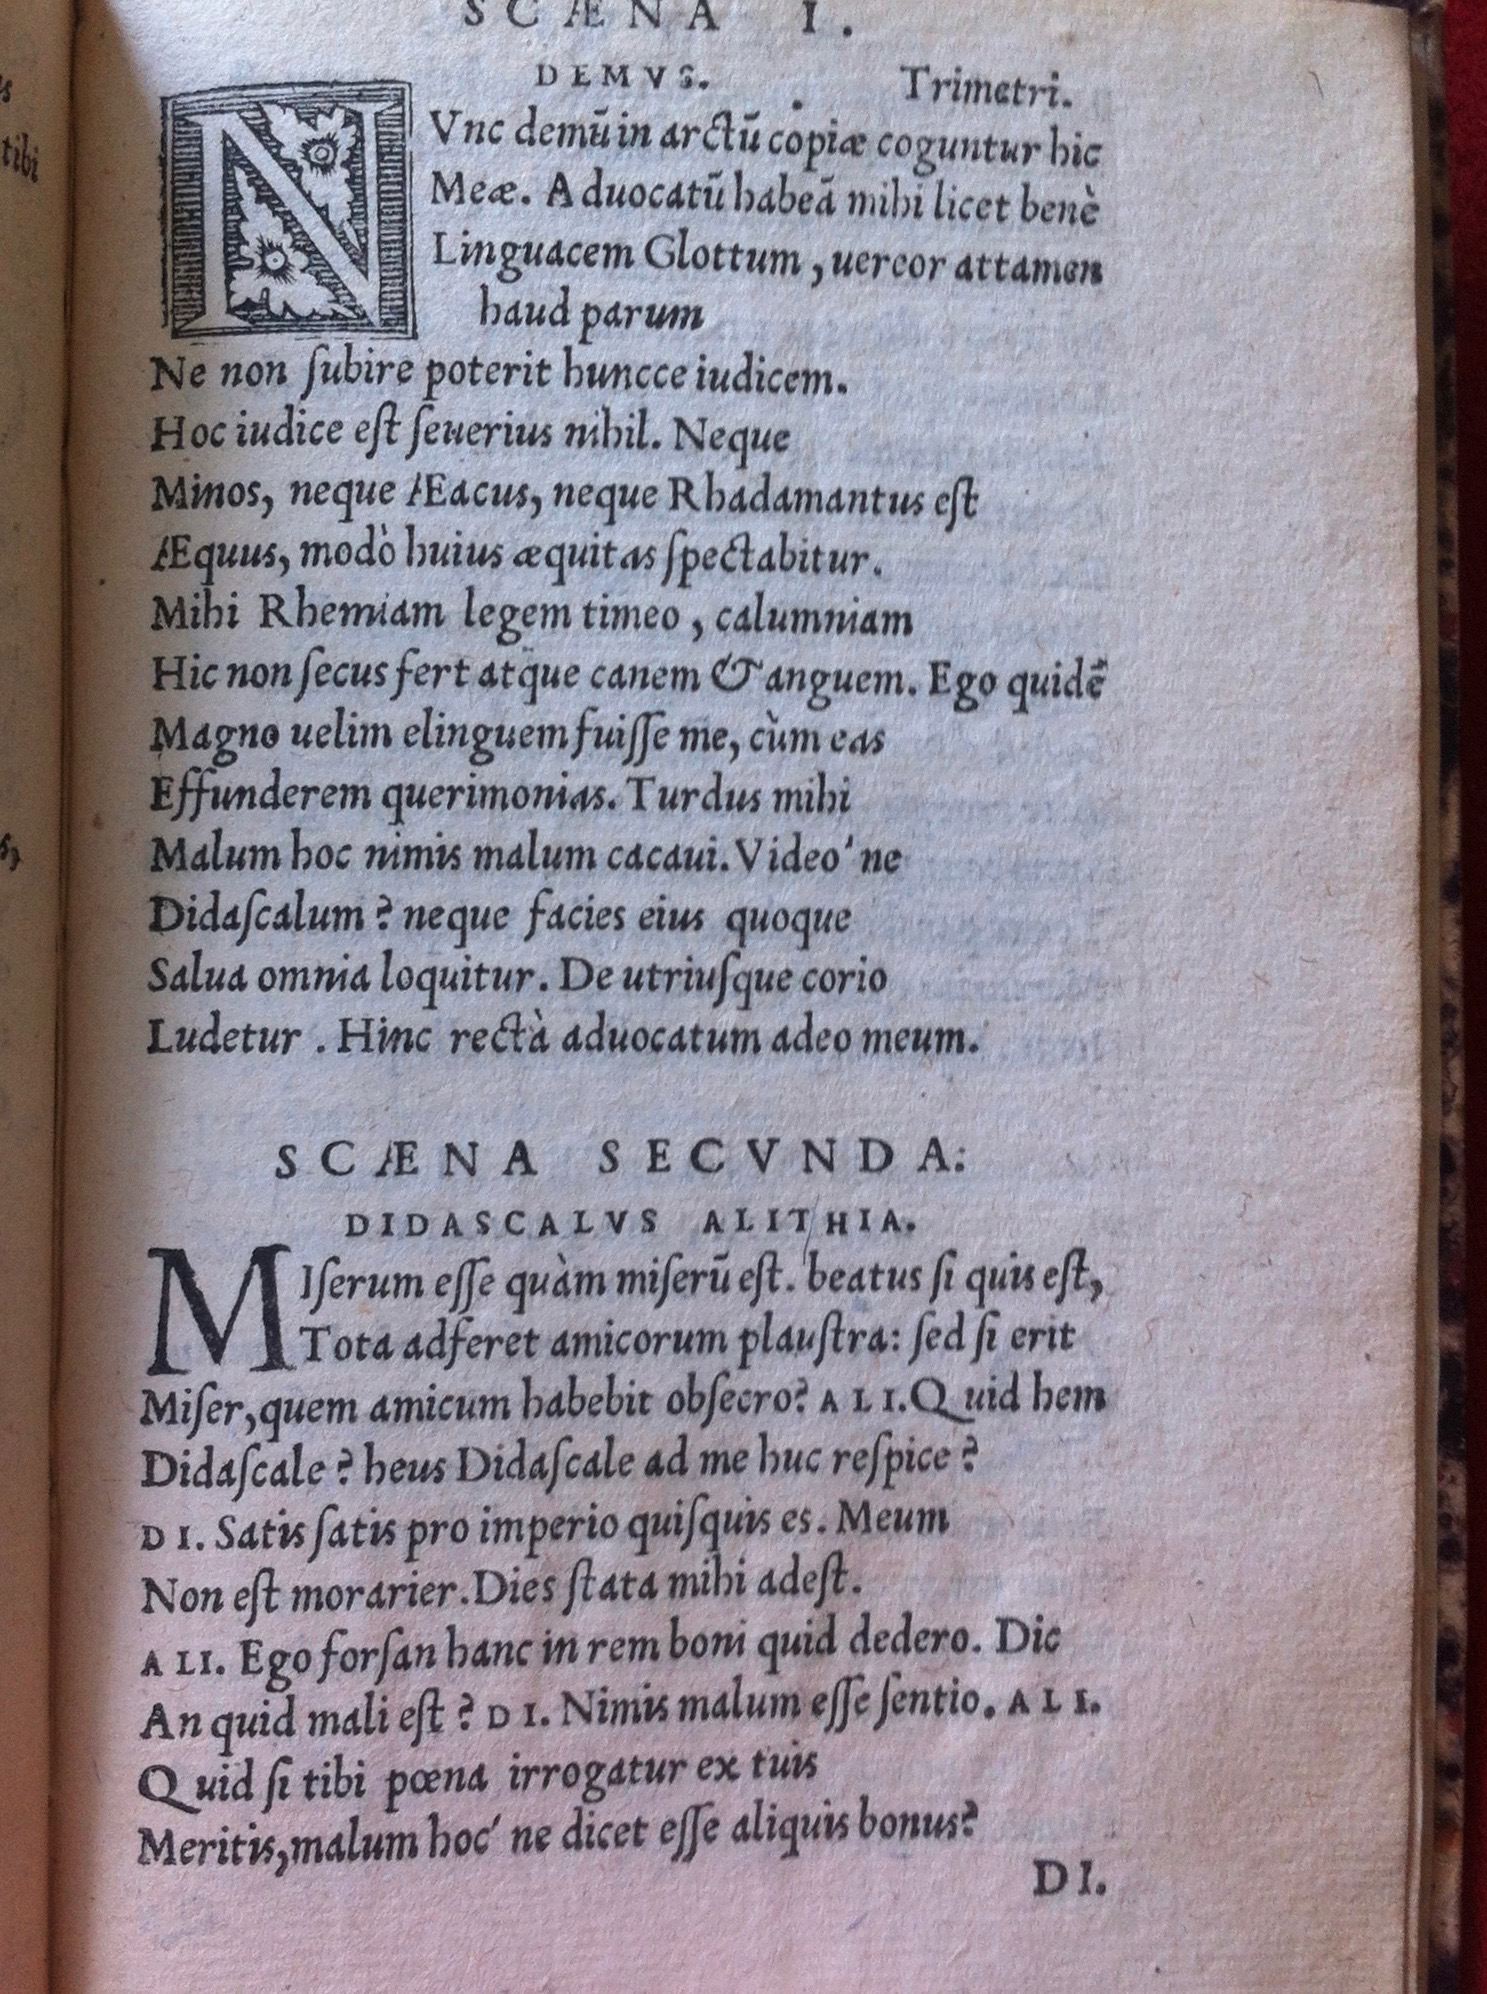 SCÆNA I.
DEMVS. Trimetri.
NVnc demũ in arctũ copiæ coguntur hic
Meæ. Aduocatũ habeã mihi licet benè
Linguacem Glottum, uereor attamen
haud parum
Ne non ſubire poterit huncce iudicem.
Hoc iudice eſt ſeuerius nihil. Neque
Minos, neque Æacus, neque Rhadamantus eſt
Æquus, modò huius æquitas ſpectabitur.
Mihi Rhemiam legem timeo, calumniam
Hic non ſecus fert atq̃ue canem & anguem. Ego quidẽ
Magno uelim elinguem fuiſſe me, cùm eas
Effunderem querimonias. Turdus mihi
Malum hoc nimis malum cacaui. Video'ne
Didaſcalum? neque facies eius quoque
Salua omnia loquitur. De utriuſque corio
Ludetur. Hinc rectà aduocatum adeo meum.
SCÆNA SECVNDA:
DIDASCALVS ALITHIA.
MIſerum eſſe quàm miſerũ eſt. beatus ſi quis eſt,
Tota adferet amicorum plauſtra: ſed ſi erit
Miſer, quem amicum habebit obſecro? ALI. Quid hem
Didaſcale? heus Didaſcale ad me huc reſpice?
DI. Satis ſatis pro imperio quiſquis es. Meum
Non eſt morarier. Dies ſtata mihi adeſt.
ALI. Ego forſan hanc in rem boni quid dedero. Dic
An quid mali eſt? DI. Nimis malum eſſe ſentio. ALI.
Quid ſi tibi pœna irrogatur ex tuis
Meritis, malum hoc'ne dicet eſſe aliquis bonus?
DI.